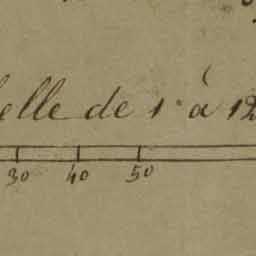 elle de 1 à 12
30 40 50